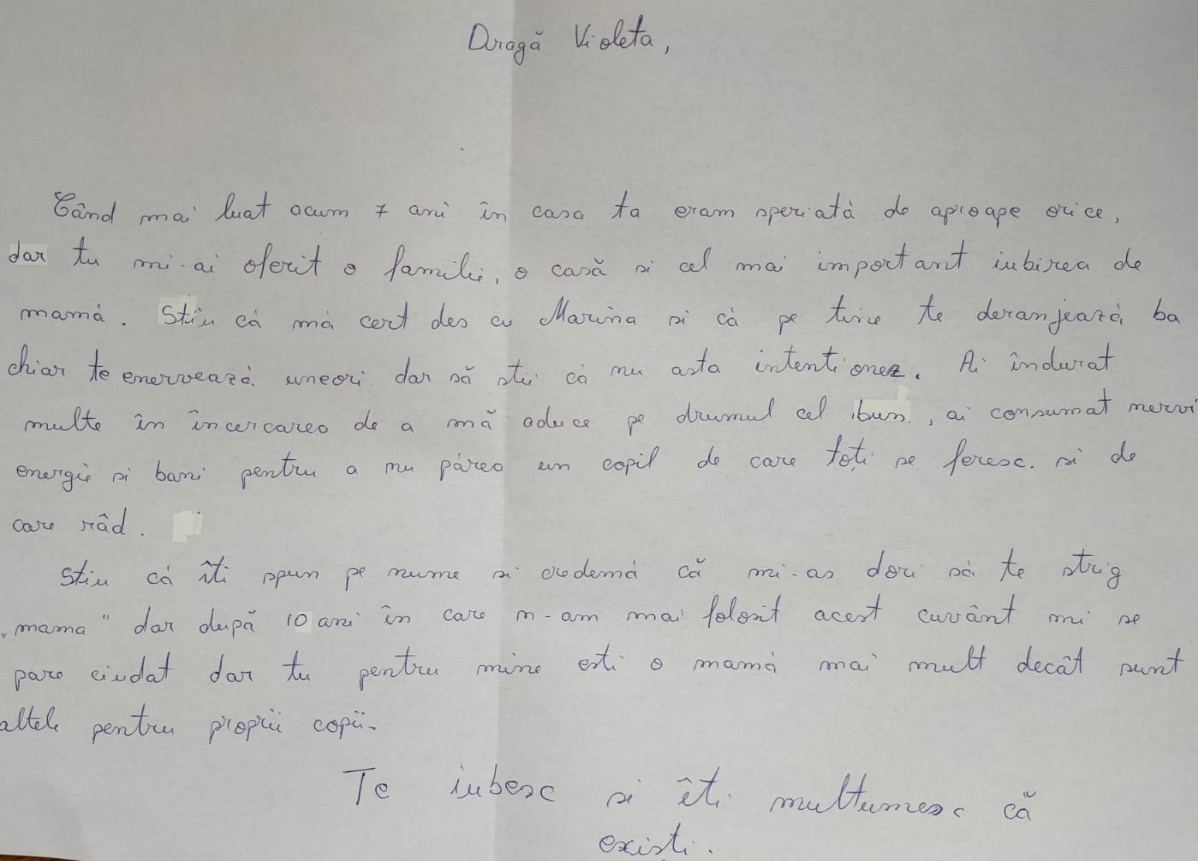 Dragă Violeta,
Când mai luat acum 7 ani în casa ta eram speriată de aproape orice,
dar tu mi-ai oferit o familie, o casă si cel mai important iubirea de
mamă. Stiu că mă cert des cu Marina si că pe tine te deranjează, ba
chiar te enervează uneori dar să stii că nu asta intentionez. Ai îndurat
multe în încercarea de a mă aduce pe drumul cel bun, ai consumat nervi
energie si bani pentru a nu părea un copil de care toți se feresc. si de
care râd.
Stiu că îti spun pe nume si credemă că mi-as dori să te strig
„mama" dar după 10 ani în care n-am mai folosit acest cuvânt mi se
pare ciudat dar tu pentru mine esti o mamă mai mult decât sunt
altele pentru proprii copii.
Te iubesc si îti multumesc că
existi.